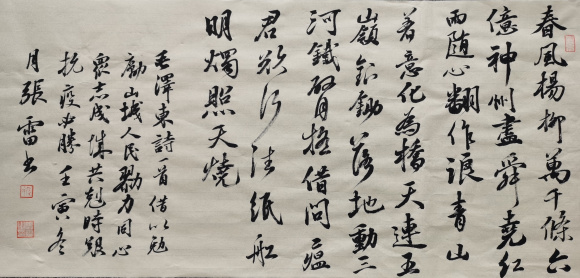 春風楊柳萬千條六
億神州盡舜堯紅
雨隨心翻作浪青山
着意化為橋天連五
嶺銀鋤落地動三
河鐵臂搖借問瘟
君欲何往紙船
明燭照天燒
毛澤東詩一首借以勉
勵山城人民勠力同心
衆志成城共剋時艱
抗疫必勝壬寅冬
月張雷書